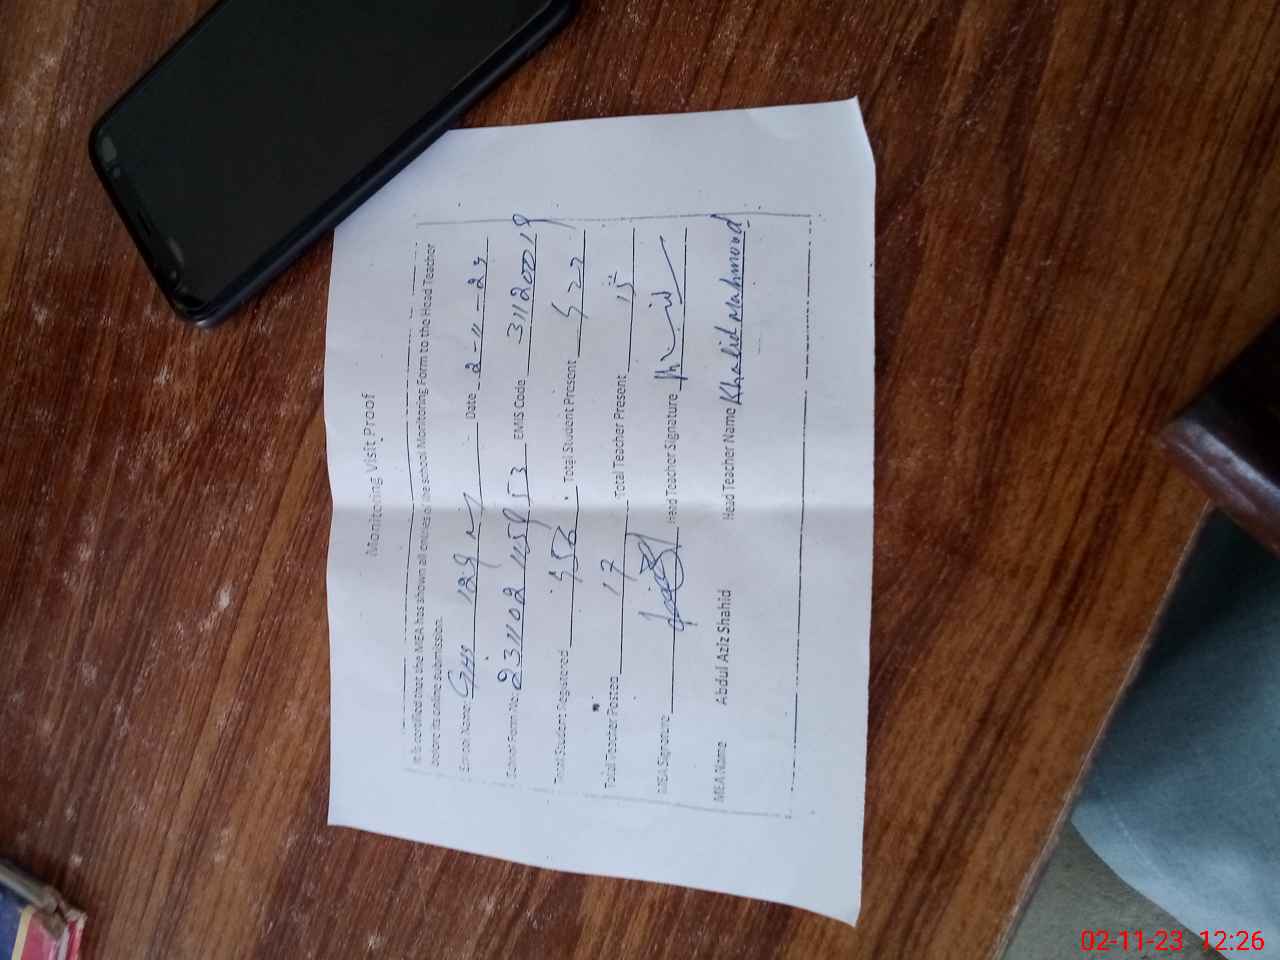 Monitoring Visit Proof
It is certified that the MEA has shown all entries of the school Monitoring Form to the Head Teacher
before its online submission.
School Name: GHS 129 Date 2-11-23
School Form No: EMIS Code 31120019
Total Student Registered Total Student Present
Total Teacher Posted 17 Total Teacher Present 15
MEA Signature Head Teacher Signature
MEA Name Abdul Aziz Shahid Head Teacher Name Khalid Mahmood
02-11-23 12:26